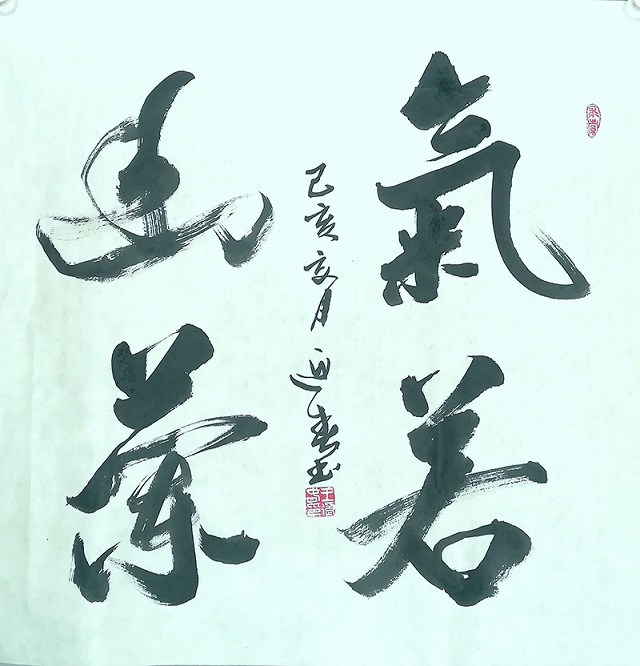 氣若
幽蘭
己亥亥月迎春書